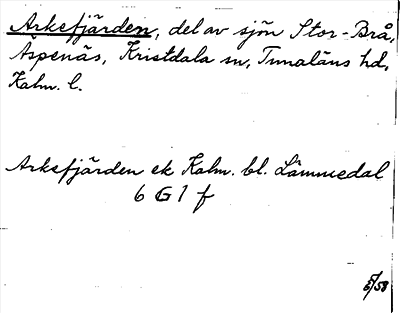 Arkefjärden, del av sjön Stor-Brå,
Aspenäs, Kristdala sn, Tunaläns hd,
Kalm. l.
Arkefjärden ek Kalm. bl. Lämmedal
6 G 1 f
5/58